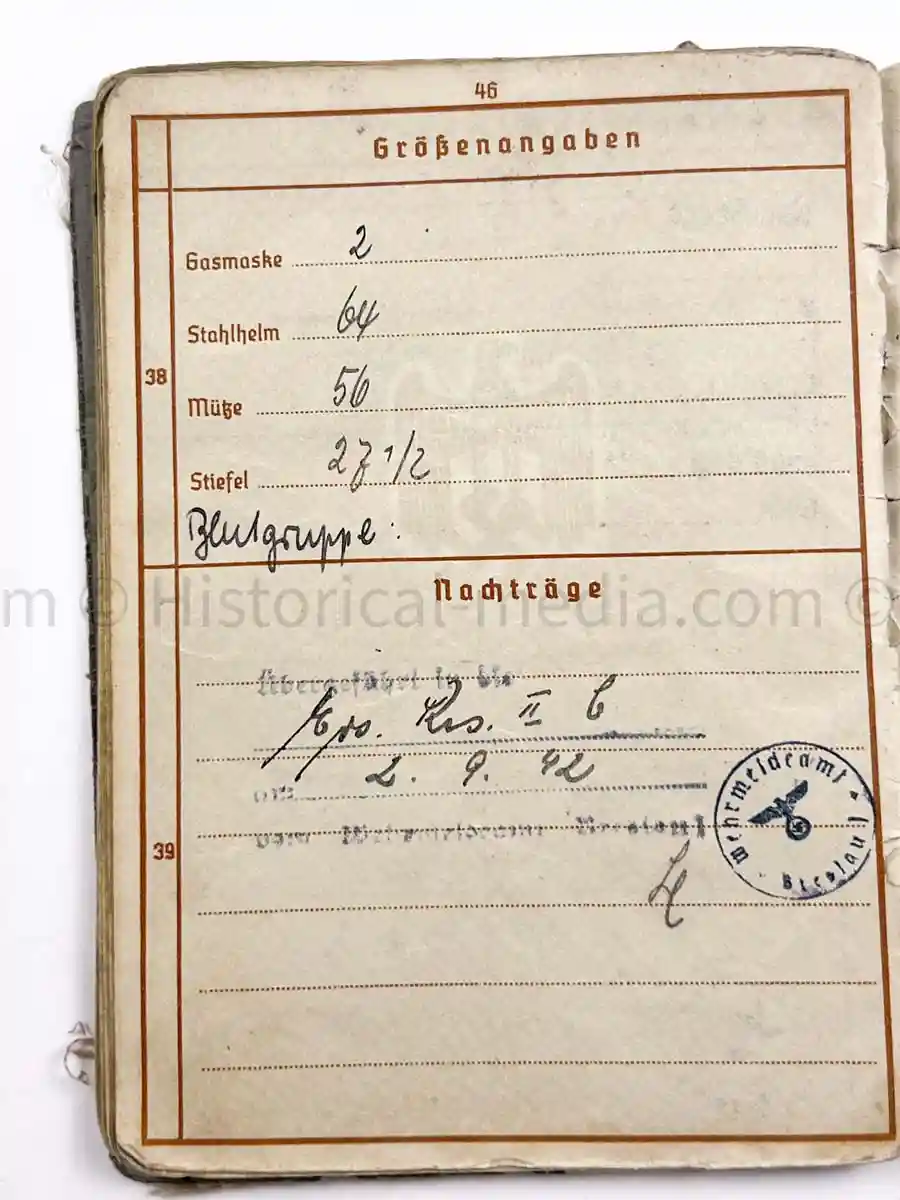 46
Größenangaben
38
Gasmaske 2
Stahlhelm 64
Mütze 56
Stiefel 27 1/2
Blutgruppe:
m © Historical-media.com ©
Nachträge
39
Übergeführt in die
Ers. Res. II C
am 2. 9. 42
vom Wehrmeldeamt Breslau I
Wehrmeldeamt Breslau 1